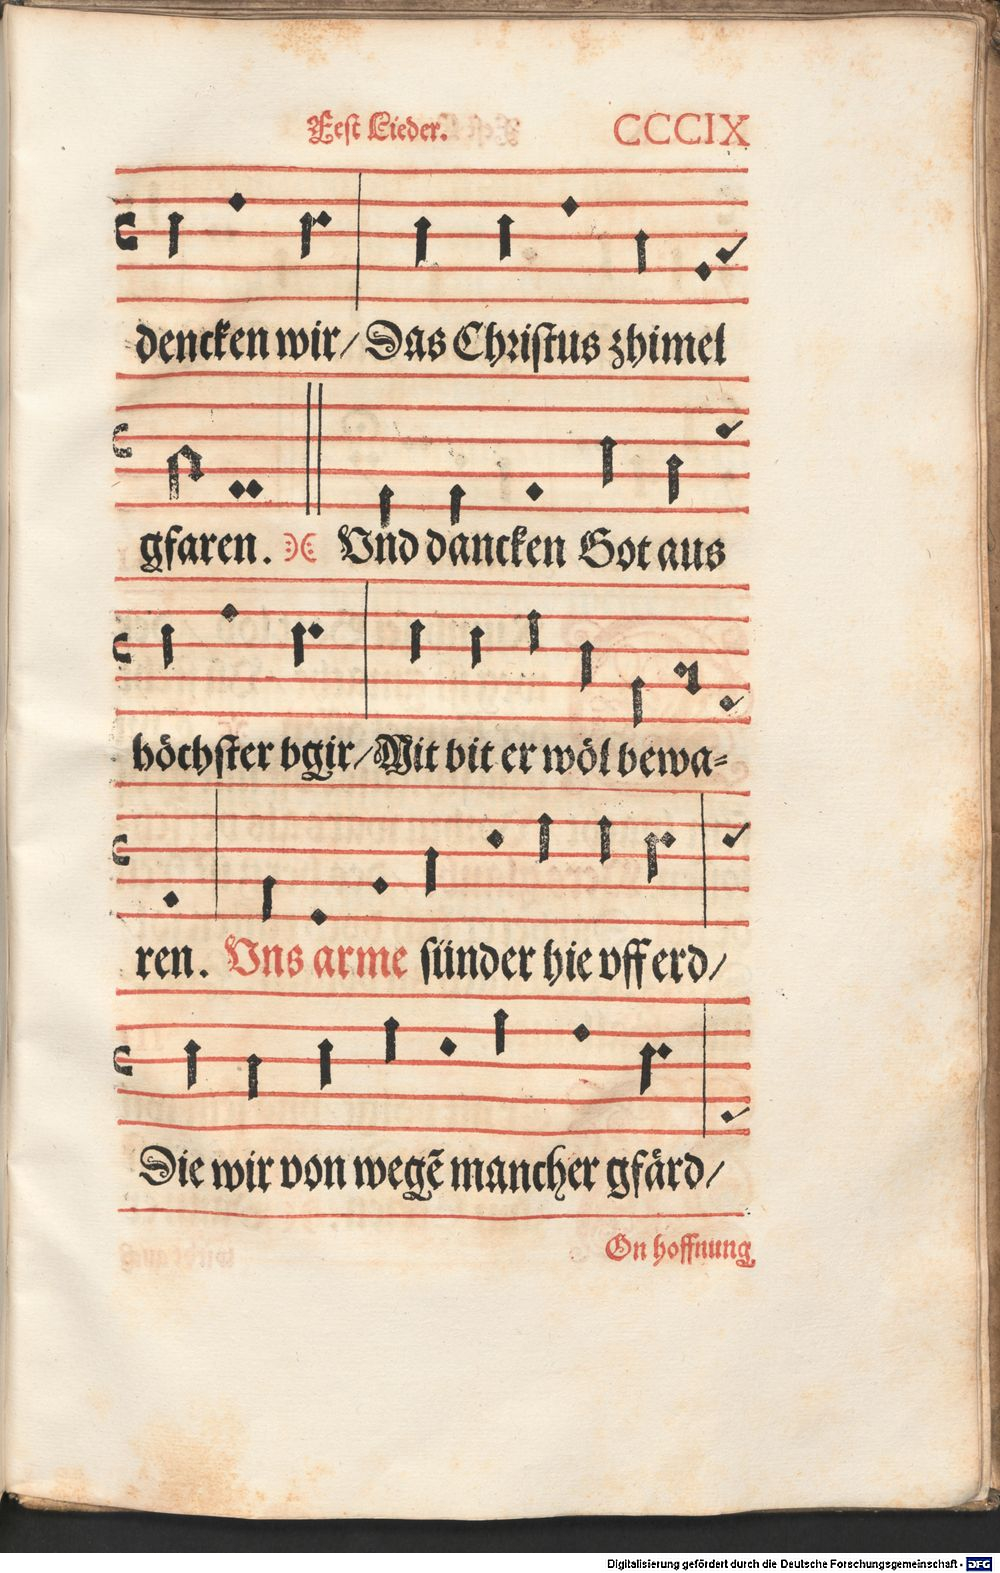 Fest Lieder. CCCIX
dencken wir/ Das Christus zhimel
gfaren. Vnd dancken Got aus
höchster bgir/ Mit bit er wöl bewa⸗
ren. Vns arme sünder hie vff erd/
Die wir von wegẽ mancher gfärd/
On hoffnung
Digitalisierung gefördert durch die Deutsche Forschungsgemeinschaft - DFG